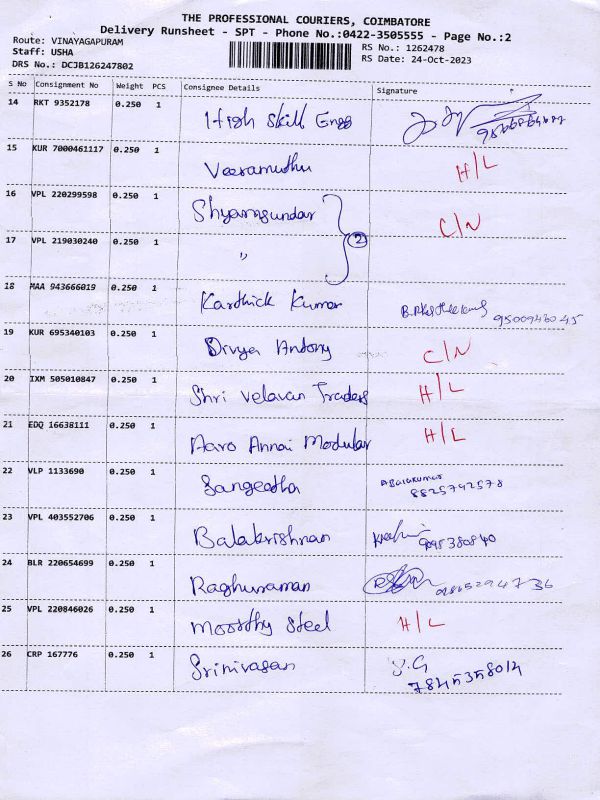 THE PROFESSIONAL COURIERS, COIMBATORE
Delivery Runsheet - SPT - Phone No.:0422-3505555 - Page No.:2
Route: VINAYAGAPURAM
Staff: USHA
DRS No.: DCJB126247802
RS No.: 1262478
RS Date: 24-Oct-2023
S No Consignment No Weight PCS Consignee Details Signature
14 RKT 9352178 0.250 1 High Skill Engg
15 KUR 7000461117 0.250 1 Veeramuthu H/L
16 VPL 220299598 0.250 1 Shyamsundar 2 C/N
17 VPL 219030240 0.250 1 "
18 MAA 943666019 0.250 1 Karthick Kumar 9500943045
19 KUR 695340103 0.250 1 Divya Antony C/N
20 IXM 505010847 0.250 1 Shri Velavan Traders H/L
21 EDQ 16638111 0.250 1 Aaro Annai Modular H/L
22 VLP 1133690 0.250 1 Sangeetha 8825742578
23 VPL 403552706 0.250 1 Balakrishnan 9095380840
24 BLR 220654699 0.250 1 Raghuraman
25 VPL 220846026 0.250 1 Moorthy Steel H/L
26 CRP 167776 0.250 1 Srinivasan